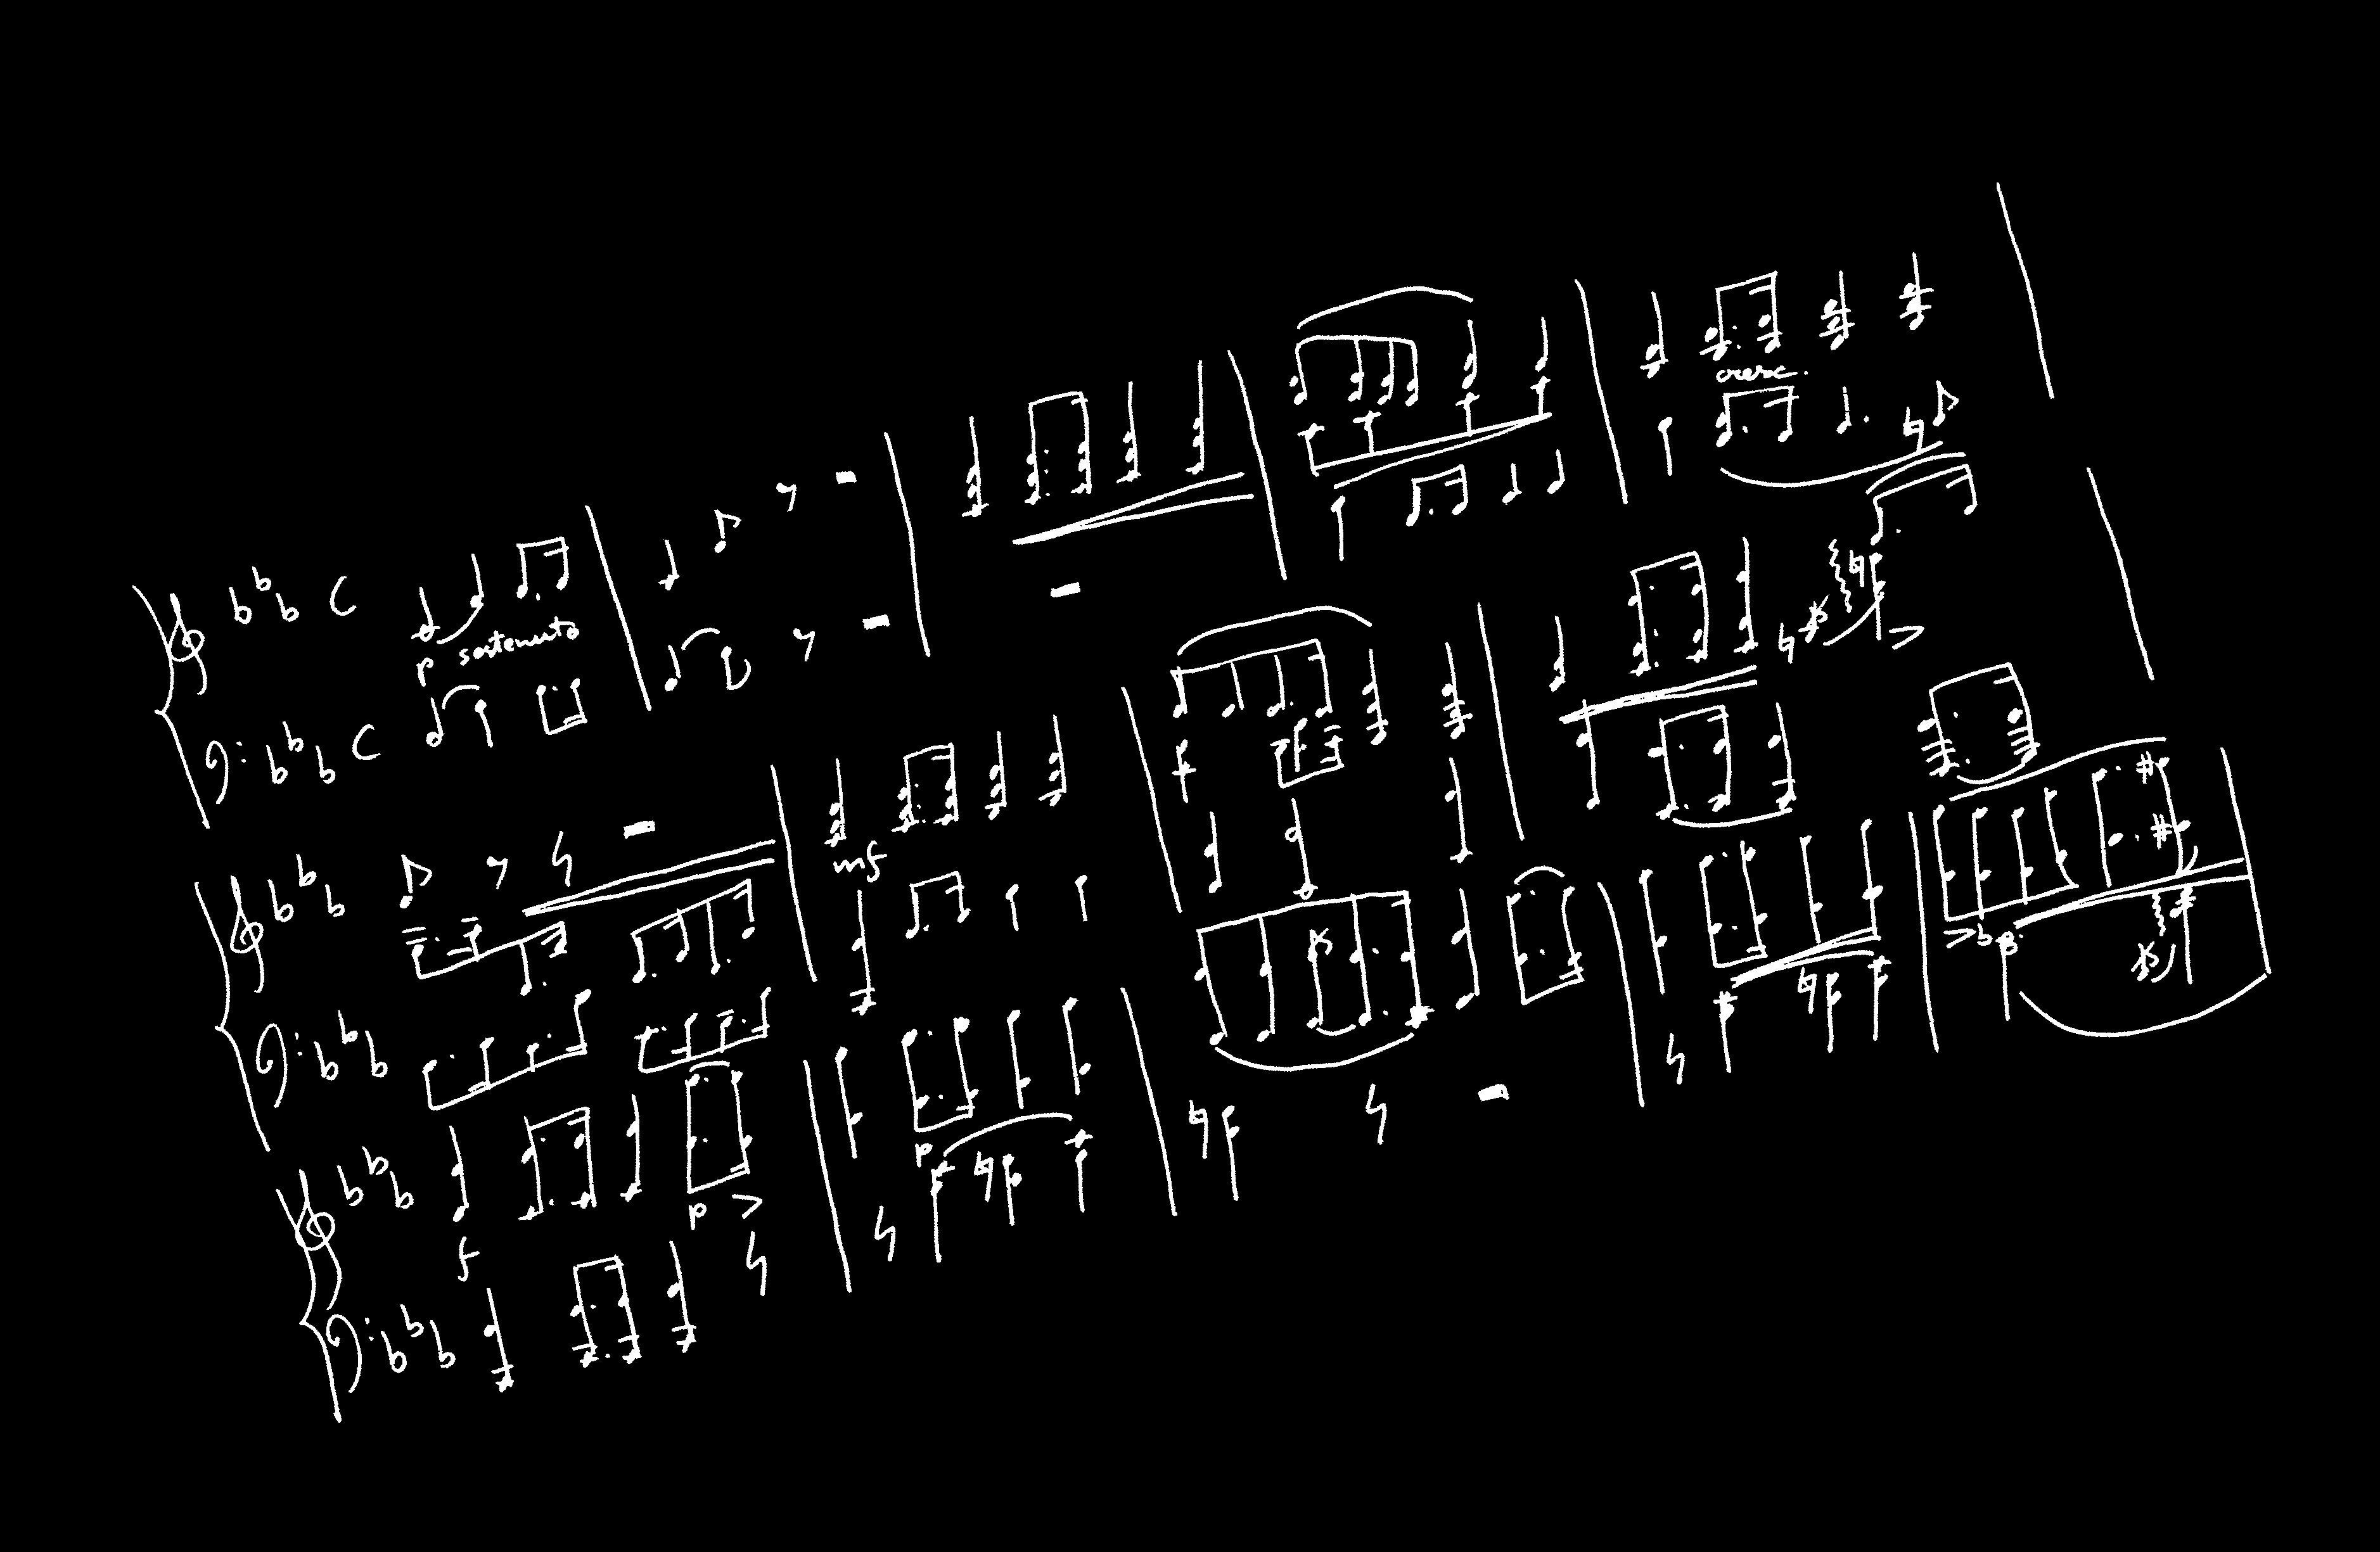 C
p sostenuto
cresc.
C
mf
p
f
p